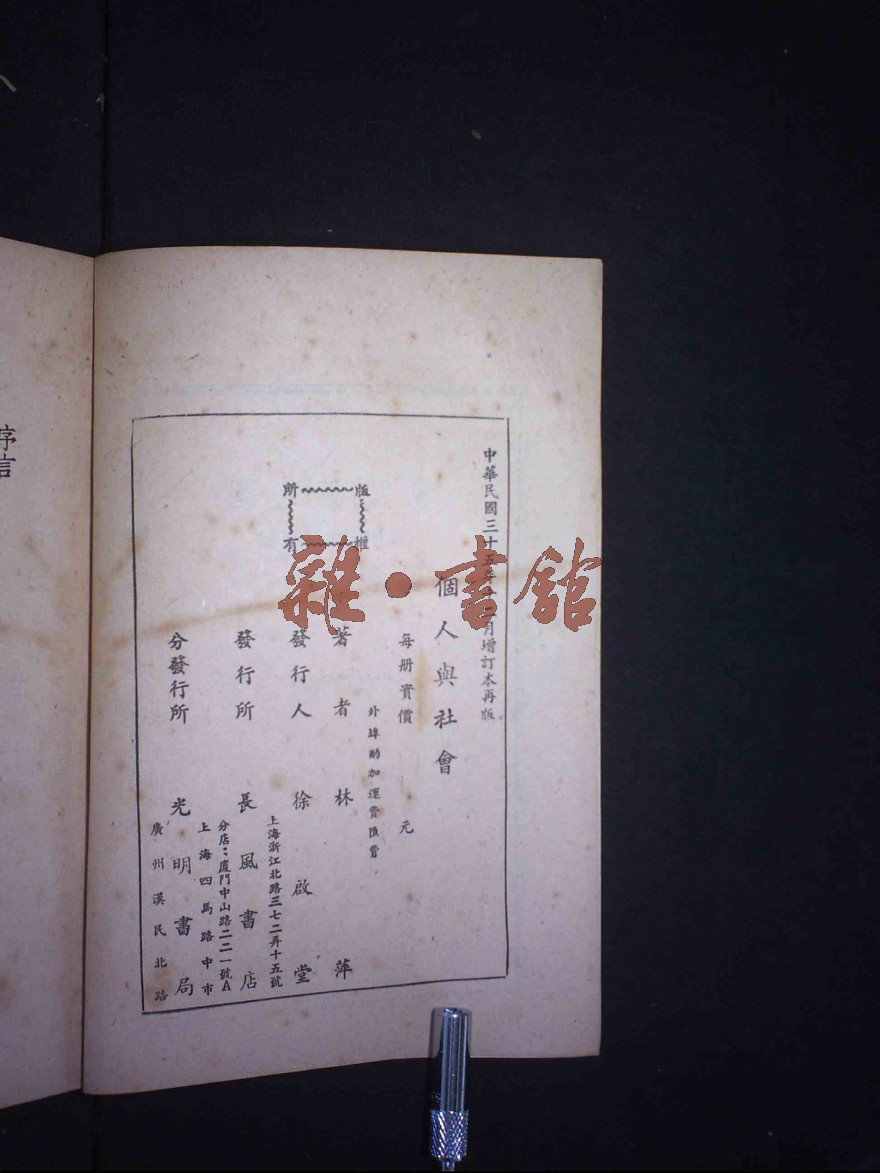 中華民國三十五年 月增訂本再版
個人與社會
每册實價 元
外埠酌加運費匯費
版權所有
著者 林萍
發行人 徐啟堂
上海浙江北路三七二弄十五號
發行所 長風書店
分店：廈門中山路二二一號A
上海四馬路中市
分發行所 光明書局
廣州漢民北路
序言
雜·書館